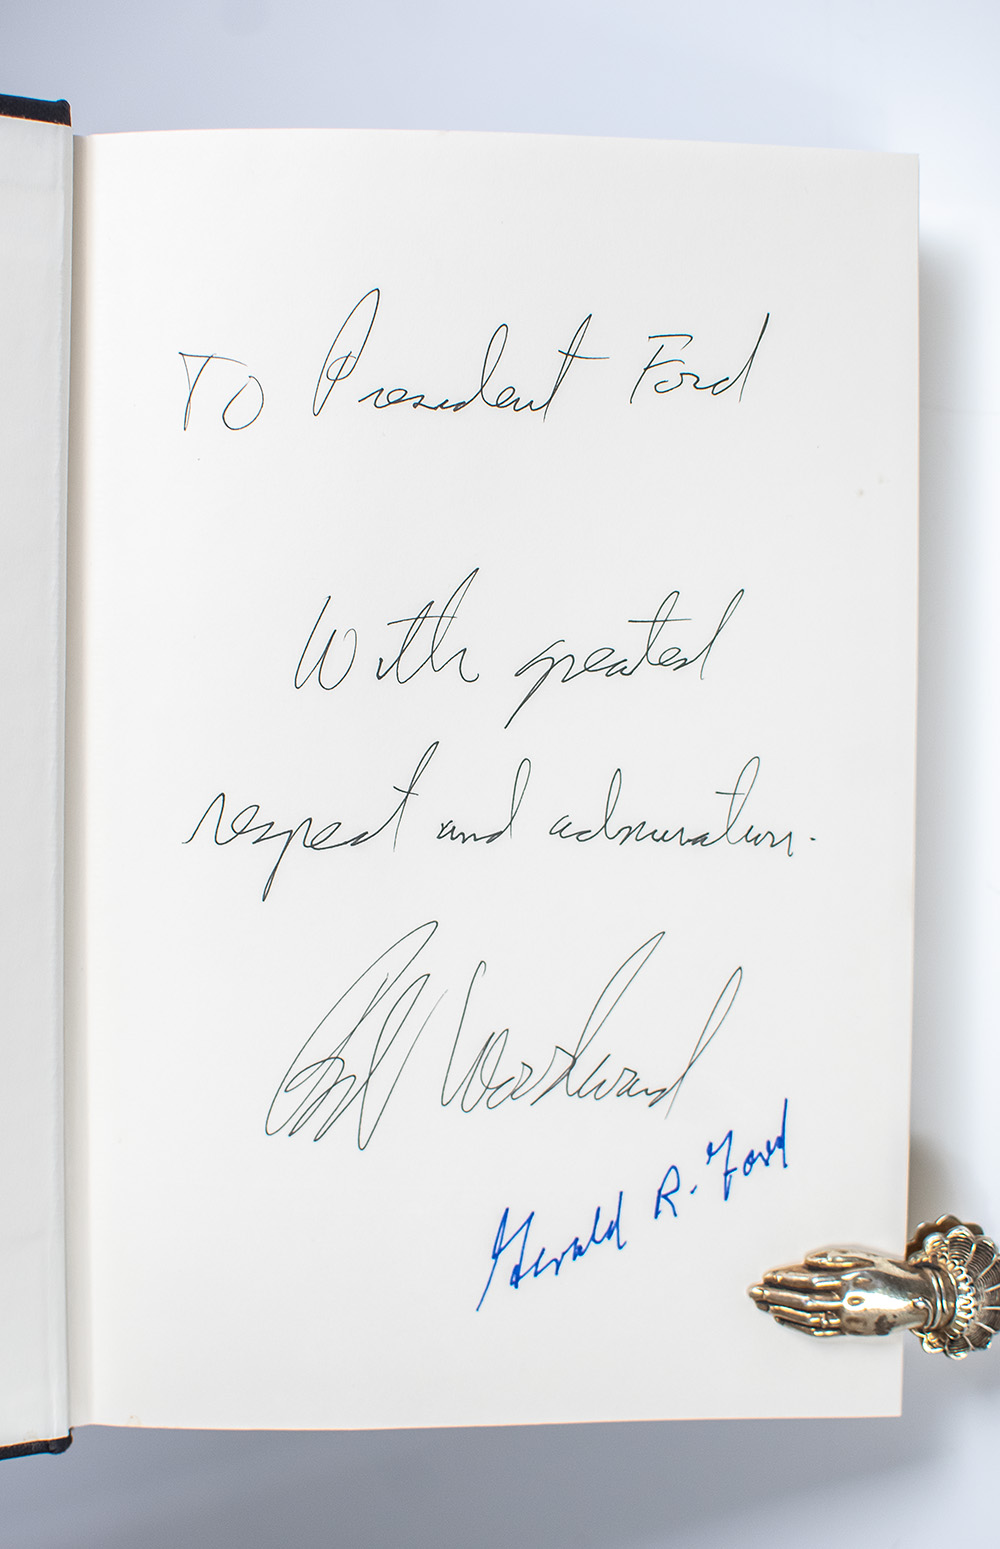 To President Ford
With greatest
respect and admiration.
Bob Woodward
Gerald R. Ford